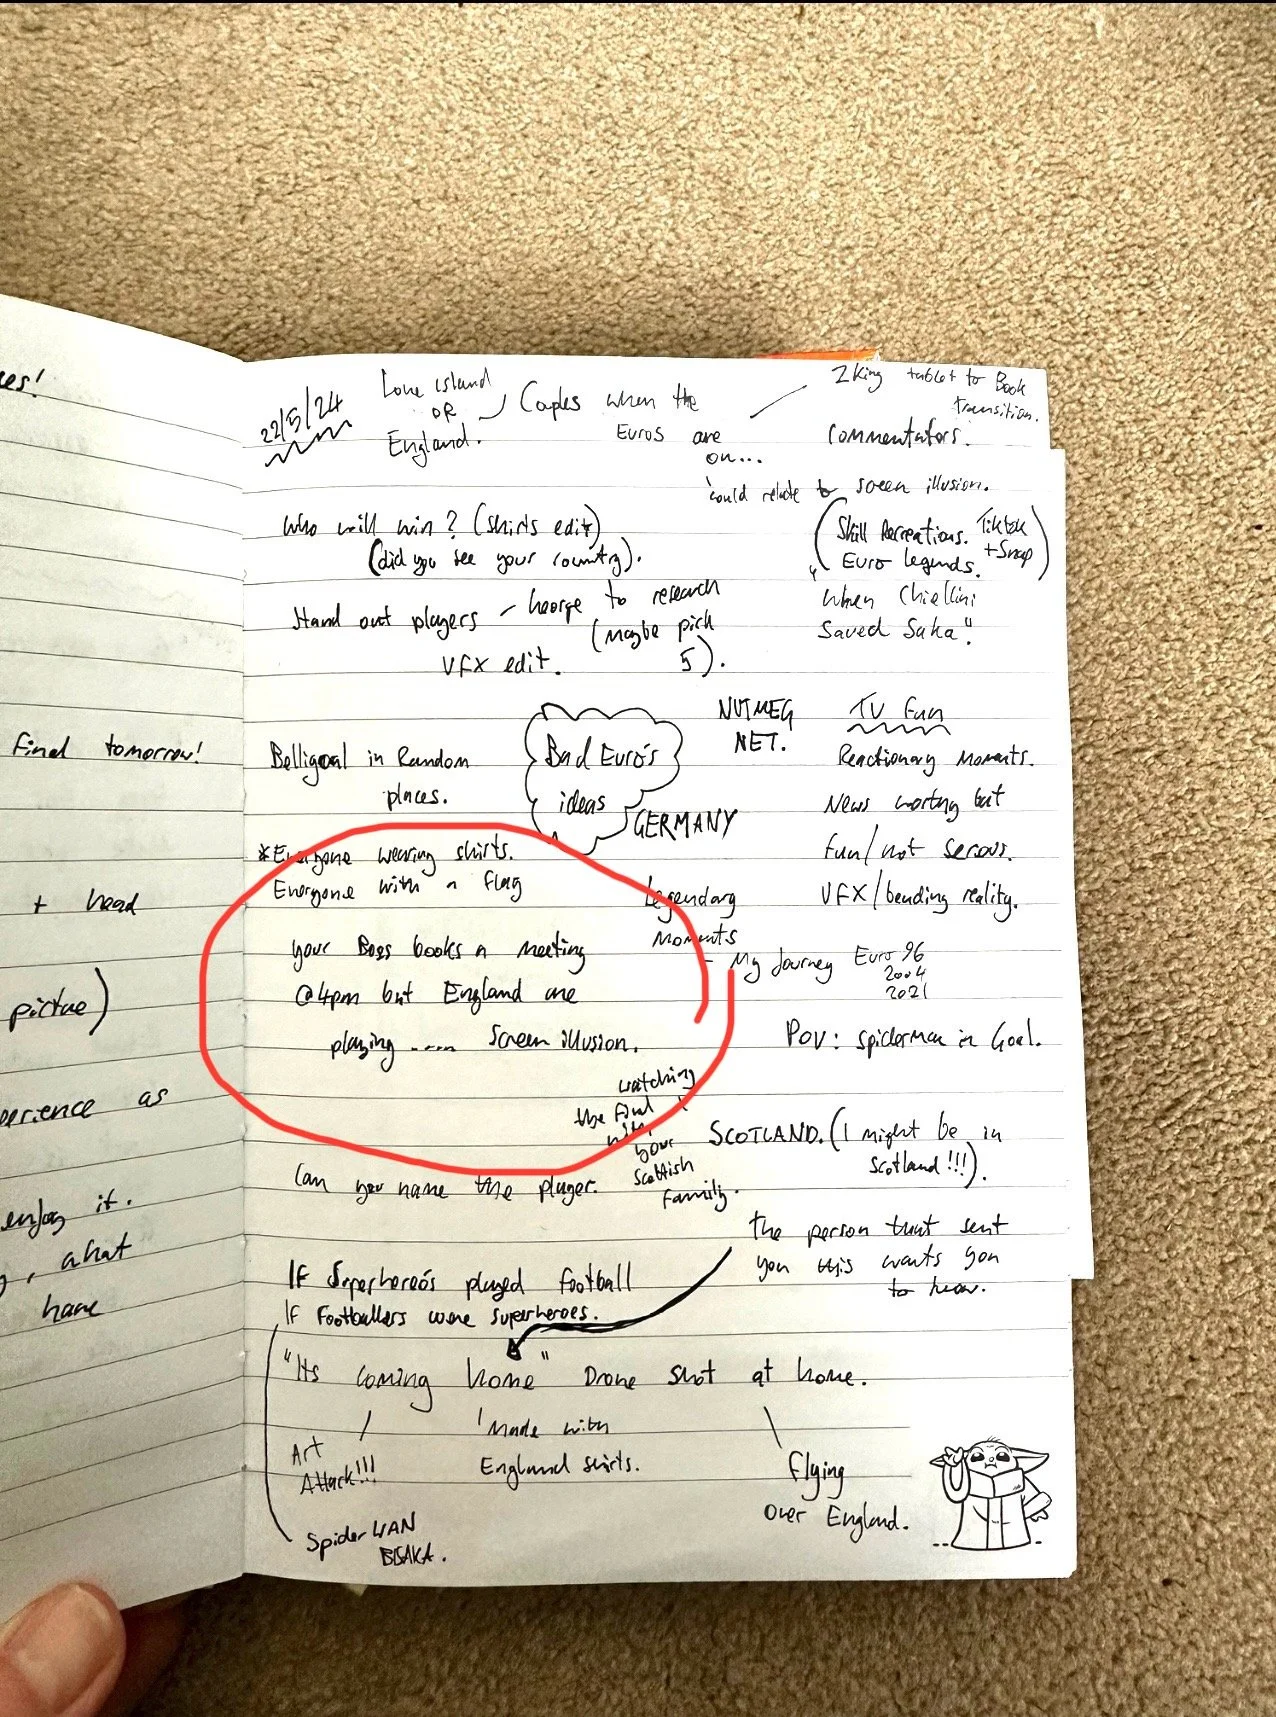 ces!
Final tomorrow!
+ head
picture)
perience as
enjoy it.
, what
have
22/5/24
Love island
OR
England.
Couples when the
Euros are
on...
2King tablet to Book
transition.
Commentators.
could relate to screen illusion.
Who will win? (shirts edit)
(did you see your country).
(Skill Recreations. Tiktok
+Snap)
Euro legends.
"When Chiellini
Saved Saka".
Stand out players - George to research
(maybe pick
5).
VFX edit.
Belligoal in Random
places.
Bad Euro's
ideas
NUTMEG
NET.
GERMANY
TV Fun
Reactionary Moments.
News worthy but
fun/not serious.
VFX/bending reality.
*Everyone wearing shirts.
Everyone with a flag
your Boss books a meeting
@4pm but England are
playing .... Screen illusion.
Legendary
Moments
- My Journey Euro 96
2004
2021
POV: spiderman in Goal.
watching
the final
with
your
Scottish
Family.
SCOTLAND. (I might be in
Scotland!!!).
Can you name the player.
the person that sent
you this wants you
to know.
If Superheroe's played football
If Footballers were superheroes.
"Its coming home" Drone shot at home.
Art
Attack!!!
Made with
England shirts.
Flying
over England.
Spider WAN
BISAKA.